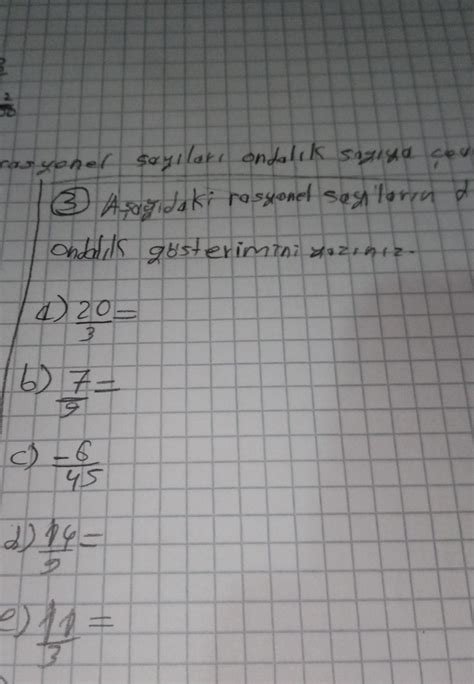 rasyonel sayıları ondalık sayıya çev
③ Aşağıdaki rasyonel sayıların d
ondalık gösterimini yazınız.
a) 20/3 =
b) 7/9 =
c) -6/45
d) 14/9 =
e) 11/3 =